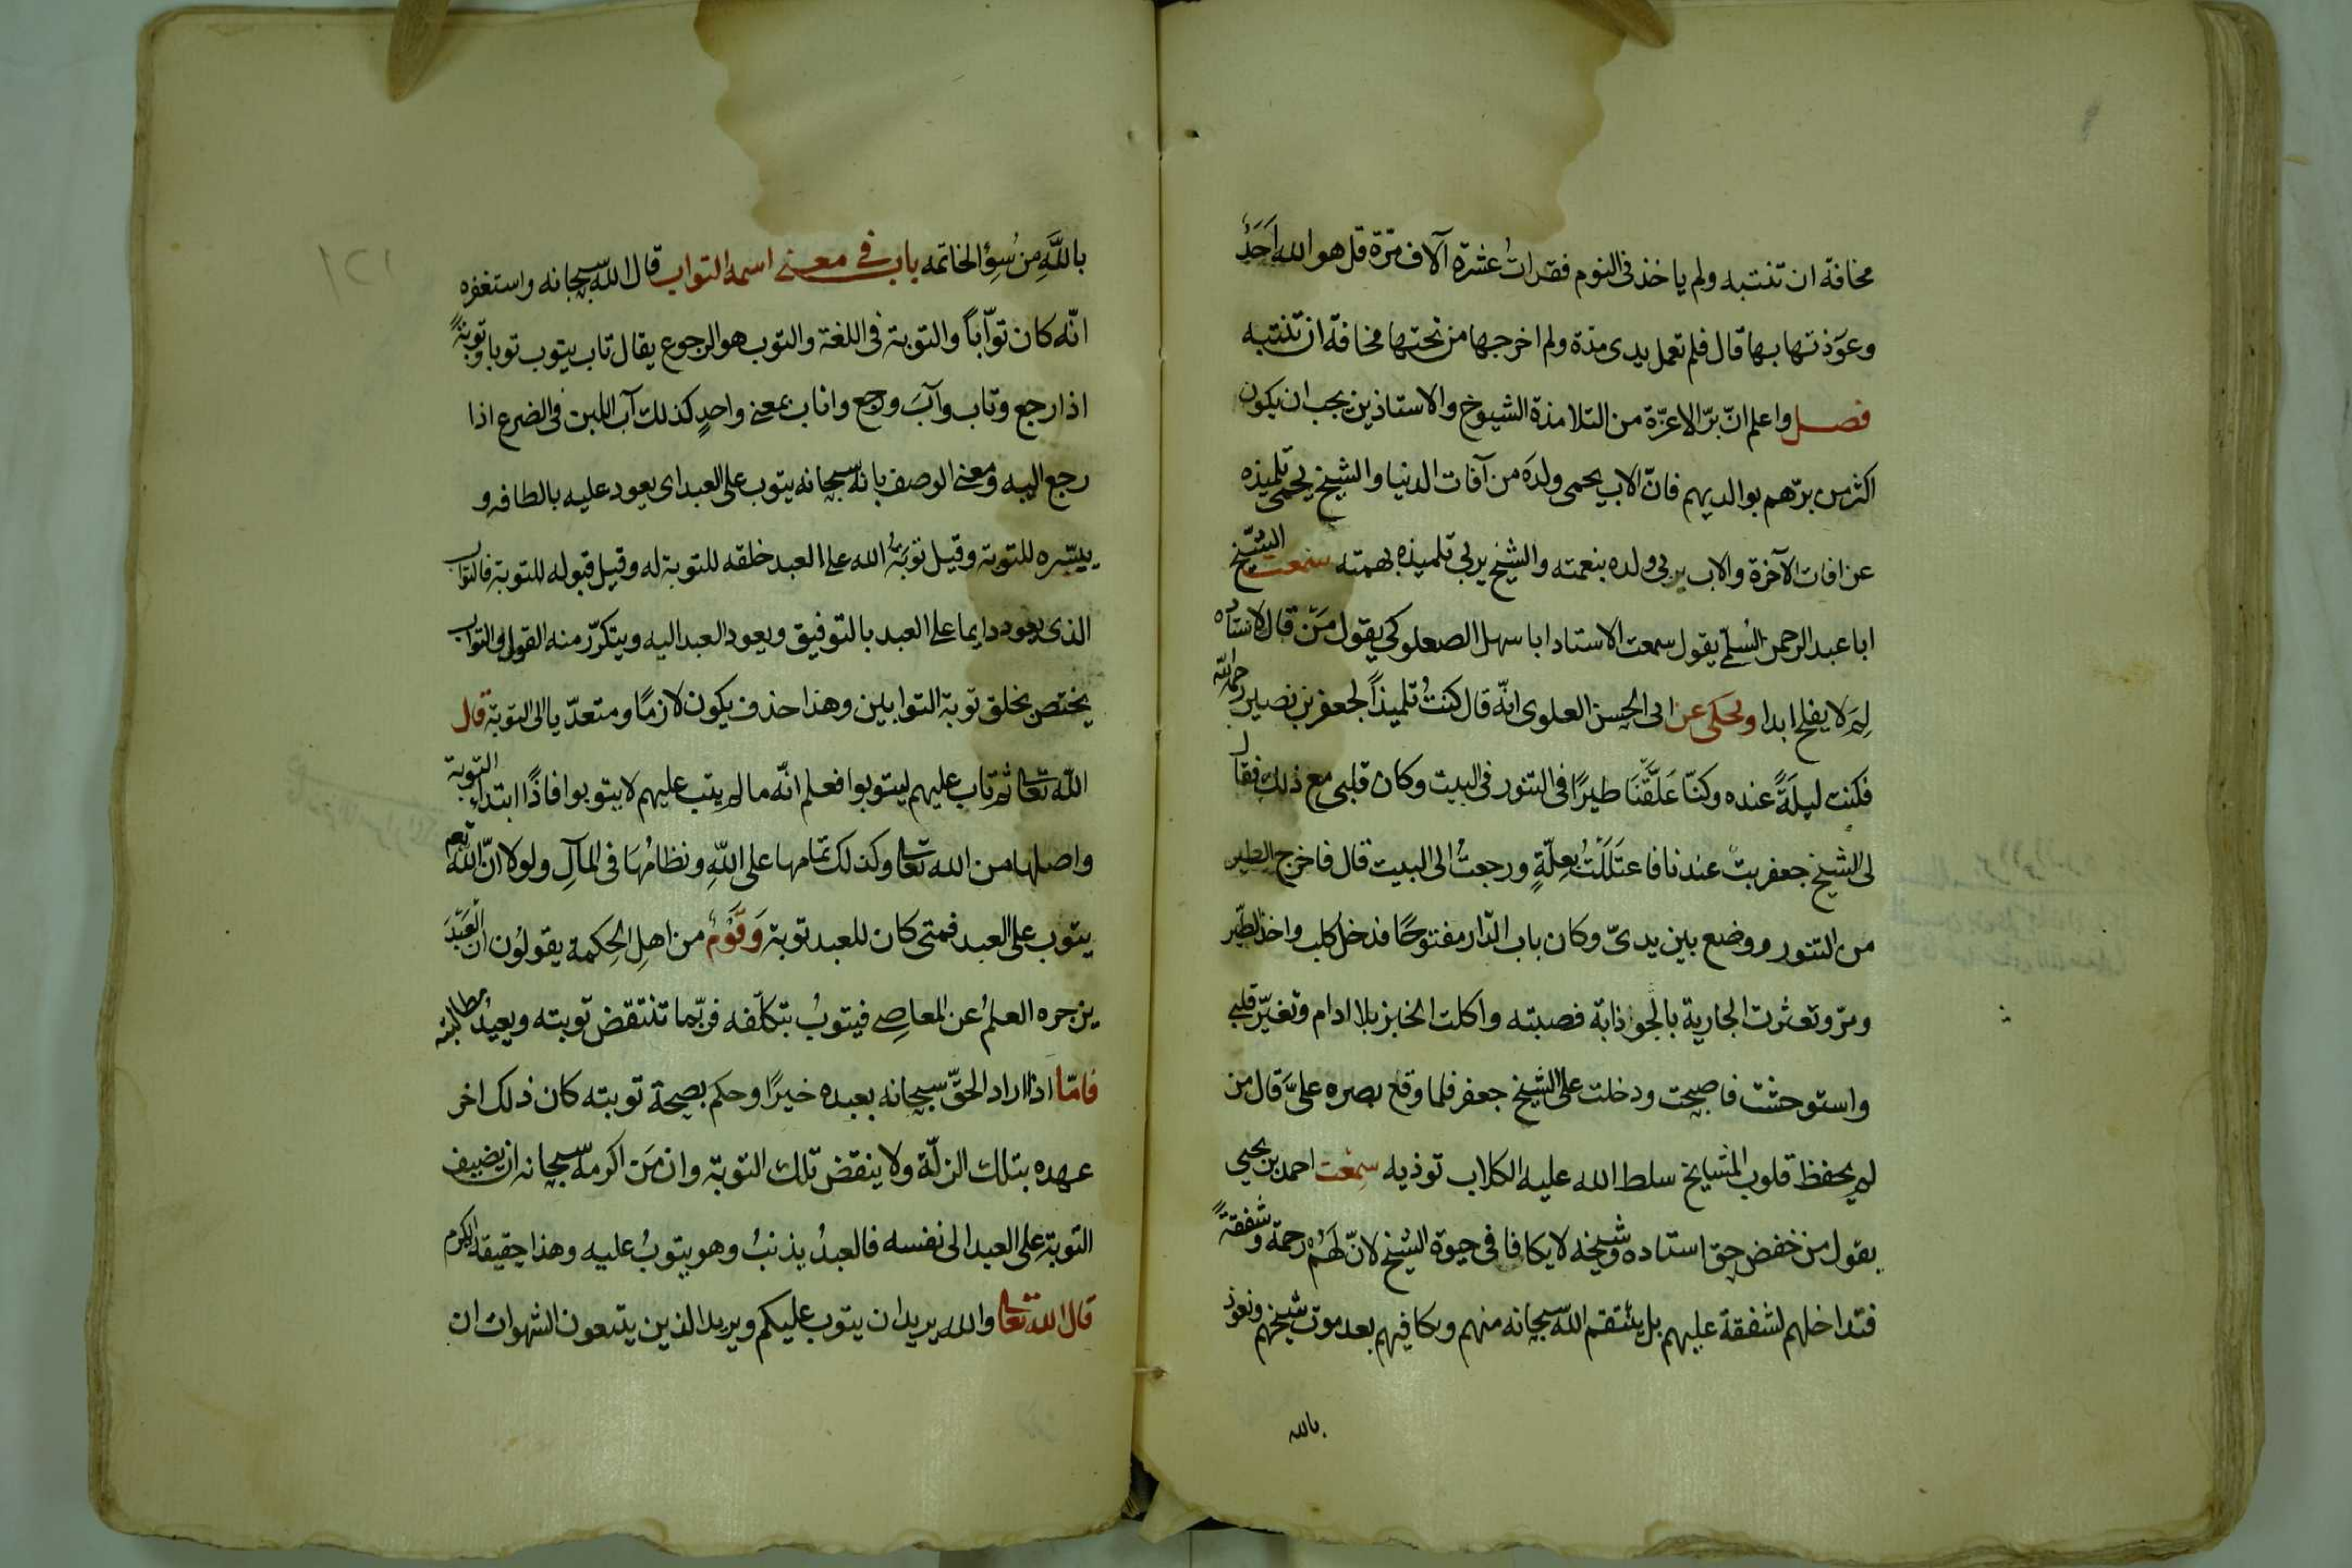 مخافة ان تنتبه ولم ياخذنى النوم فقرات عشرة آلاف مرّة قل هو الله اَحَدٌ
وعوّذتها بها قال فلم تعمل يدى مدّة ولم اخرجها من تحتها مخافة ان تنتبه
فصل واعلم انّ برّ الاعزّة من التلامذة الشيوخ والاستاذين يجب ان يكون
اكثر من برّهم بوالديهم فانّ الاب يحمى ولدَه من آفات الدنيا والشيخ يحمى تلميذه
عن افات الآخرة والاب يربى ولده بنعمته والشيخ يربى تلميذه بهمته سمعت الشيخ
ابا عبد الرحمن السُلمىّ يقول سمعت الاستاد ابا سهل الصعلوكى يقول مَنْ قال لاستاده
لِمَ لا يفلح ابدا ويحكى عن ابى الحسن العلوى انّه قال كنتُ تلميذاً لجعفر بن نصير رحمه الله
فكنت ليلَةً عنده وكنّا عَلَّقْنَا طيرًا فى التنور فى البيت وكان قلبى مع ذلك فقال
لى الشيخ جعفر بتْ عندنا فاعتَلَلْتُ بِعِلّةٍ ورجعتُ الى البيت قال فاخرج الطير
من التنور ووضع بين يدىّ وكان باب الدّار مفتوحًا فدخل كلب واخذ الطّير
ومرّ وتعثرت الجارية بالجوذابة فصبته واكلت الخبز بلا ادام وتغيّر قلبى
واستوحشت فاصبحت ودخلت على الشيخ جعفر فلما وقع بصره علىَّ قال من
لم يحفظ قلوب المشايخ سلط الله عليه الكلاب توذيه سمعت احمد بن يحيى
يقول من خفض حق استاده وشيخه لا يكافا فى حيوة الشيخ لانّ لَهُمْ رحمة وشفقةً
فتداخلهم لشفقة عليهم بل ينتقم الله سبحانه منهم ويكافيهم بعد موت شيخهم ونعوذ
بالله
بِاللَّهِ مِن سُؤِ الخاتمه باب فى معنى اسمه التواب قال الله سبحانه واستغفره
انّه كان توّاباً والتوبة فى اللغة والتوب هو الرجوع يقال تاب يتوب توبا وتوبةً
اذا رجع وتاب وآبَ ورجع واناب بمعنى واحدٍ كذلك آب اللبن فى الضرع اذا
رجع اليه ومعنى الوصف بانه سبحانه يتوب على العبد اى يعود عليه بالطافه و
ييسّره للتوبة وقيل توبَةُ الله على العبد خلقه للتوبة له وقيل قبوله للتوبة فالتواب
الذى يعود دايما على العبد بالتوفيق ويعود العبد اليه ويتكرّر منه القول والتواب
يختص بخلق توبة التوابين وهذا حذف يكون لازمًا ومتعدّيا الى التوبة قال
الله تعالى ثم تاب عليهم ليتوبوا فعلم انّه ما لم يتب عليهم لا يتوبوا فاذًا ابتداء التوبة
واصلها من الله تعالى وكذلك تمامها على اللهِ ونظامُهَا فى المآلِ ولولا انّ الله تعم
يتوب على العبد فمتى كان للعبد توبة وَقَوْمٌ من اهلِ الحِكمة يقولوُن انّ العَبْدَ
يزجره العلمُ عن المعاصِى فيتوبُ بتكلّفه فربّما تنتقض توبته ويعيدُ مطالبته
فامّا اذا اراد الحقّ سبحانه بعبده خيرًا وحكم بصحة توبته كان ذلك اخر
عهده بتلك الزلّة ولا ينقض تلك التوبة وان مَن اكرمه سبحانه ان يضيف
التوبة على العبد الى نفسه فالعبدُ يذنبُ وهو يتوبُ عليه وهذا حقيقة الكرم
قال الله تعالى والله يريد ان يتوب عليكم ويريد الذين يتبعون الشهوات ان